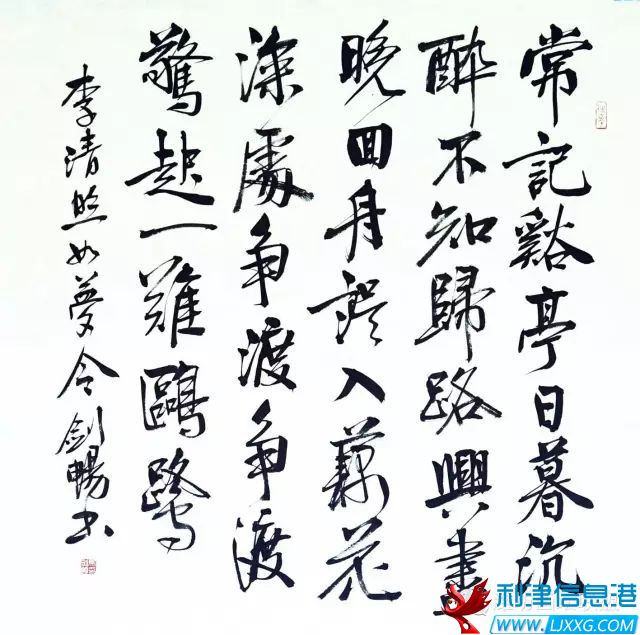 常記谿亭日暮沉
醉不知歸路興盡
晚回舟誤入藕花
深處争渡争渡
驚起一難鷗鷺
李清照如夢令劍暢书
利津信息港
WWW.LJXXG.COM